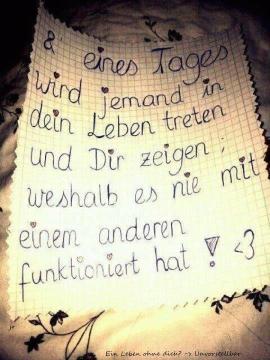 & eines Tages
wird jemand in
dein Leben treten
und Dir zeigen ;
weshalb es nie mit
einem anderen
funktioniert hat ! <3
Ein Leben ohne dich? -> Unvorstellbar